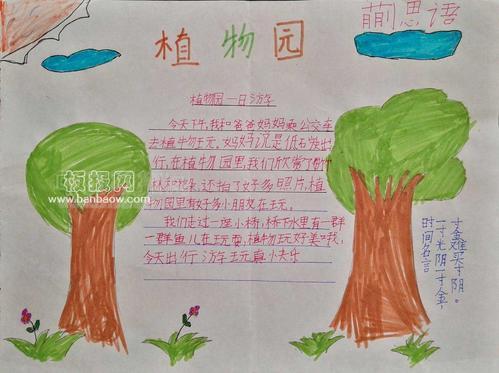 植物园
萠思语
植物园一日游
今天下午,我和爸爸妈妈乘公交车
去植物玩,妈妈说是低石炭出
行,在植物园里,我们欣赏了
林和花朵,还拍了好多照片,植
物园里有好多小朋友在玩。
我们走过一座小桥,桥下水里有一群
一群鱼儿在玩耍,植物玩好美哦,
今天出行游玩真小夬乐
寸金难买寸光阴。
一寸光阴一寸金,
时间名言
板报网
www.banbaow.com